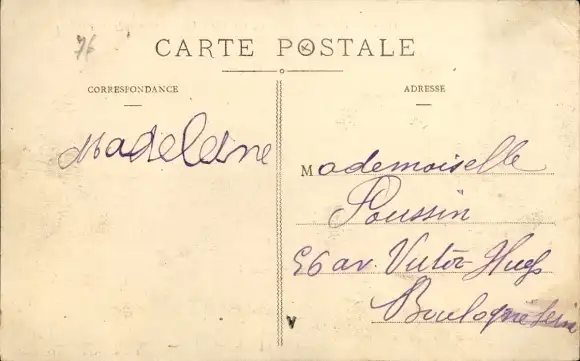 76
CARTE POSTALE
CORRESPONDANCE
ADRESSE
Madeleine
Mademoiselle
Poussin
56 av. Victor Hugo
Boulogne Seine
V